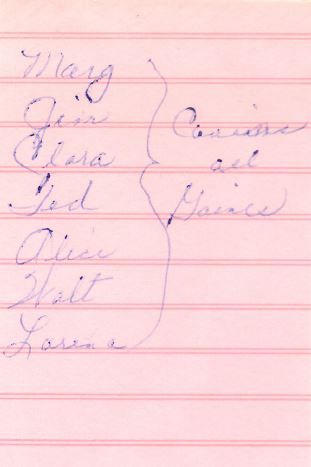 Marg
Jim
Clara
Ted
Alice
Walt
Lorena
Cousins
all
Gaines